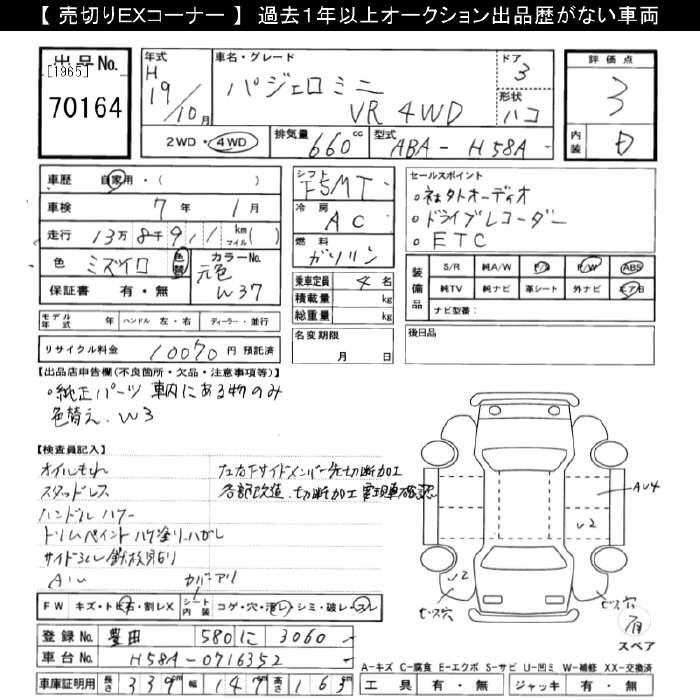 【 売切りEXコーナー 】 過去1年以上オークション出品歴がない車両
出品No.
[1965]
70164
年式 H 19/10月
車名・グレード
パジェロミニ
VR 4WD
ドア 3
形状 ハコ
評価点
3
内装 D
2WD・4WD
排気量 660cc
型式 ABA-H58A
車歴 自家用・( )
車検 7年 1月
走行 13万8千911 km マイル( )
色 ミズイロ 色替
カラーNo. 元色 W37
保証書 有・無
モデル年式 年 ハンドル 左・右 ディーラー・並行
リサイクル料金 10070 円 預託済
シフト F5MT
冷房 AC
燃料 ガソリン
乗車定員 4名
積載量 kg
総重量 kg
名変期限
月 日
セールスポイント
・社外オーディオ
・ドライブレコーダー
・ETC
装備品
S/R 純A/W P/S P/W ABS
純TV 純ナビ 革シート 外ナビ エアB
ナビ型番:
後日品
【出品店申告欄(不良箇所・欠品・注意事項等)】
・純正パーツ 車内にある物のみ
色替え.W3
【検査員記入】
オイルもれ
スタッドレス
ハンドルハワー
トリムペイントハケ塗り.ハガレ
左右Fサイドメンバー先切断加工
各部改造.切断加工 要現車確認
カバーアリ
FW キズ・ト石・割レX シート内装 コゲ・穴・汚レ・シミ・破レ・スレ
登録No. 豊田 580 に 3060
車台No. H58A-0716352
車庫証明用 長さ 339 幅 147 高さ 163
AU4
U2
U2
ビス穴
ビス穴
有
スペア
A-キズ C-腐食 E-エクボ S-サビ U-凹ミ W-補修 XX-交換済
工具 有・無 ジャッキ 有・無